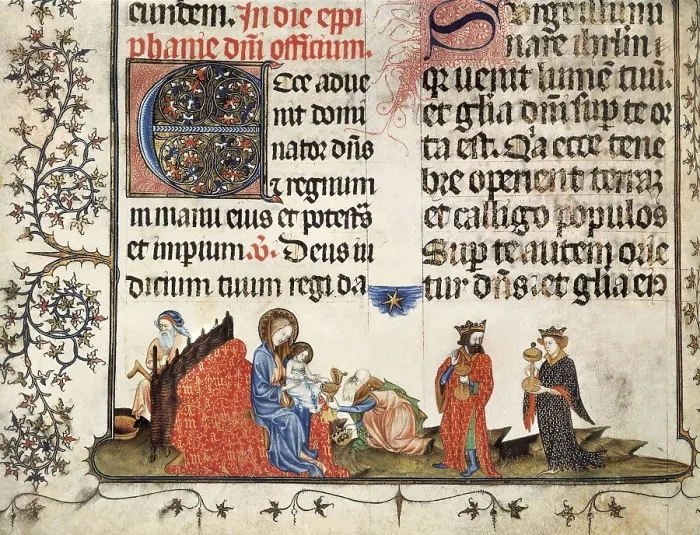 eundem. In die epi
phanie dnī officium.
Ecce adue
nit domi
nator dn̄s
⁊ regnum
in manu eius et potestās
et imp̄ium. V̄. Deus iu
dicium tuum regi da
Surge illumi
nare ihrl̄m
qr uenit lumē tuū.
et gl̄ia dn̄i sup te or
ta est. Q̄a ecce tene
bre operient terrā
et caligo populos
Sup te autem orie
tur dn̄s. et gl̄ia ei